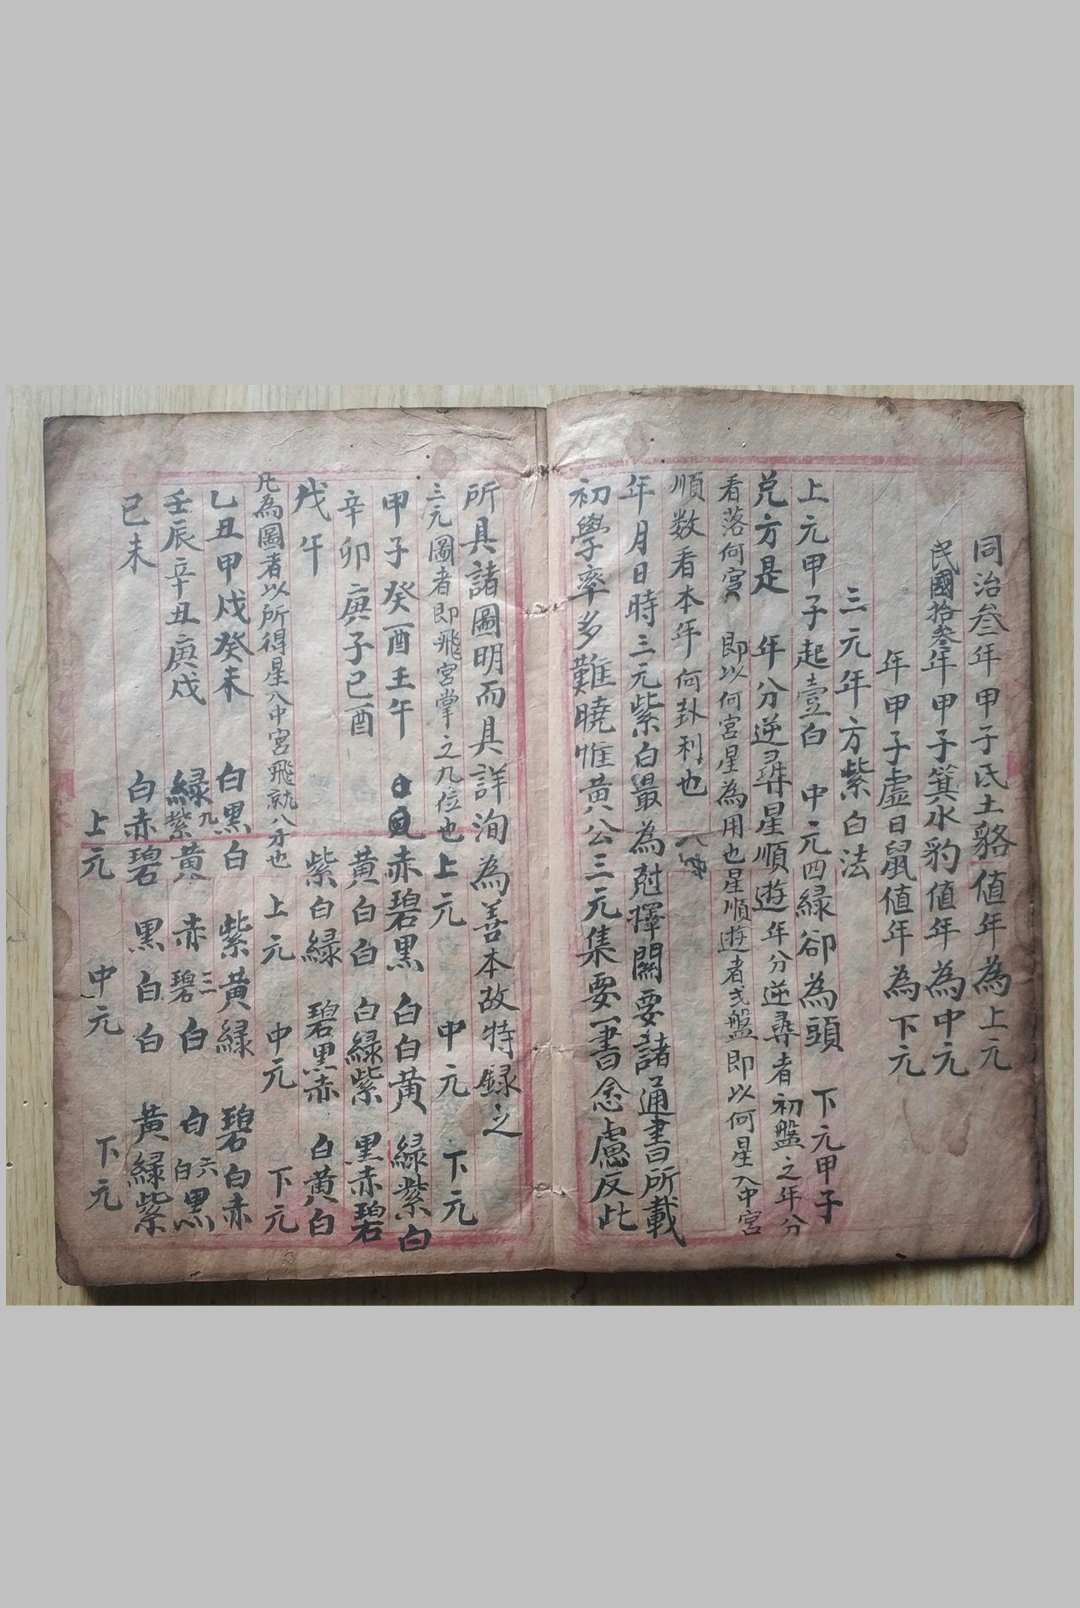 同治叁年甲子氐土貉值年為上元
民國拾叁年甲子箕水豹值年為中元
年甲子虛日鼠值年為下元
三元年方紫白法
上元甲子起壹白 中元四緑卻為頭 下元甲子
兌方是 年分逆尋星順遊年分逆尋者初盤之年分
看落何宮 即以何宮星為用也星順遊者弍盤即以何星入中宮
順数看本年何卦利也
年月日時三元紫白最為尅擇關要諸通書所載
初學率多難曉惟黄公三元集要一書念慮及此
所具諸圖明而具詳洵為善本故特録之
三元圖者即飛宮掌之九位也上元 中元 下元
甲子癸酉壬午 赤碧黒 白白黄 緑紫白
辛卯庚子己酉 黄白白 白緑紫 黒赤碧
戊午 紫白緑 碧黒赤 白黄白
凡為圖者以所得星入中宮飛就八方也 上元 中元 下元
乙丑甲戌癸未 白黒白 紫黄緑 碧白赤
壬辰辛丑庚戌 緑紫九黄 赤碧三白 白白六黒
己未 白赤碧 黒白白 黄緑紫
上元 中元 下元